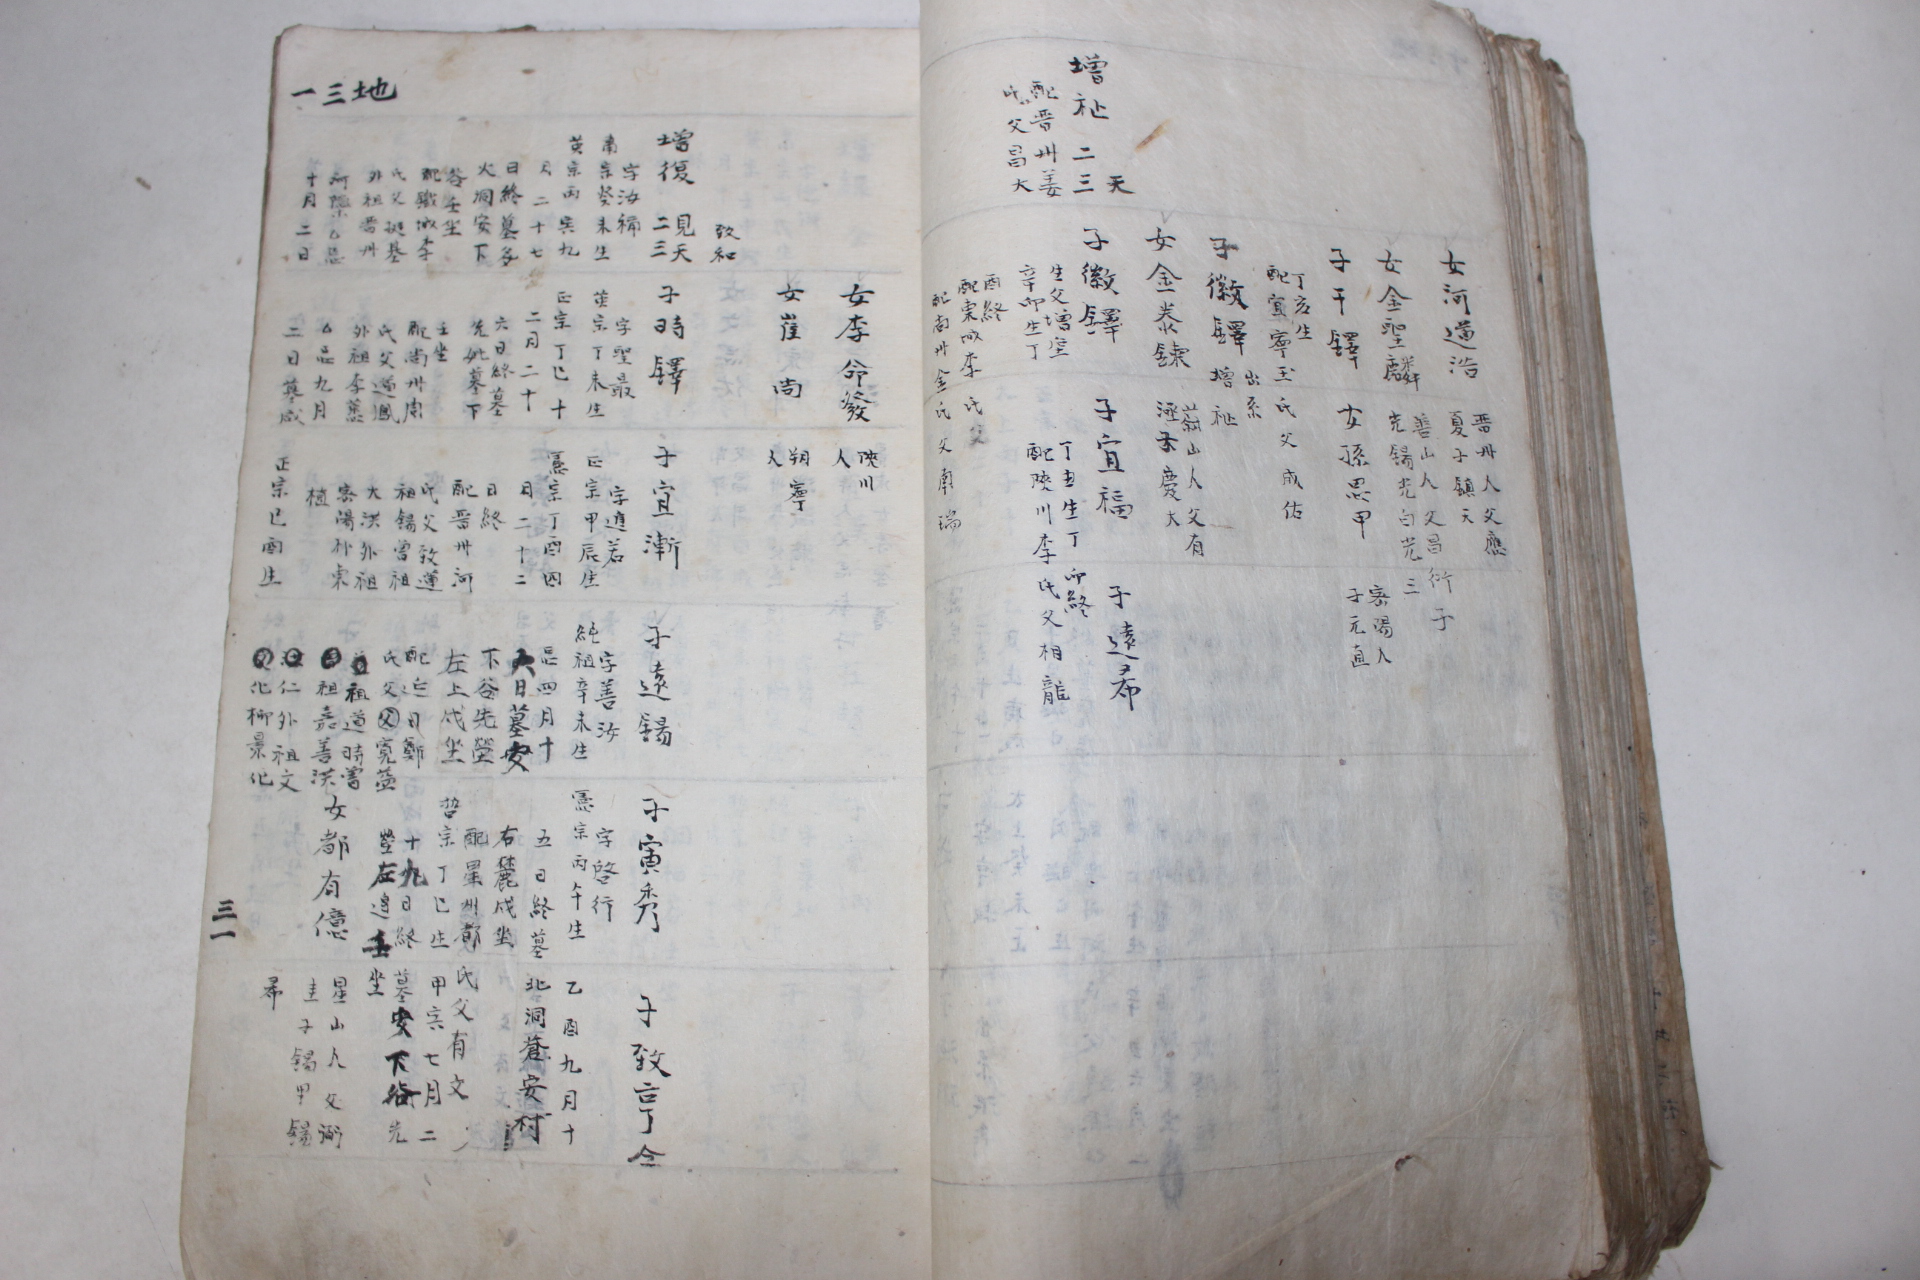 女河道浩
晋州人父應
夏子鎭天
女金聖麟
善山人父昌衍子
光錫光白光三
子干鐸
女孫思甲
密陽人
子元直
丁亥生
配寶寧玉氏父成佑
子徽鐸
出系
增祉
女金泰鍊
蔚山人父有
增祉二三天
配晋州姜
氏父昌大
子徽鐸
生父增
辛卯生丁
酉終
配東城李氏父
配尙州金氏父南瑞
子宜福
丁丑生丁卯終
配陜川李氏父相龍
子遠希
地三一
女李命發
陜川
人
女崔尚
朔寧
人
致和
增復見天二三
字汝稀
肅宗癸未生
英宗丙兵九
月二十七
日終墓多
火洞安下
谷壬坐
配鐵城李
氏父挺基
外祖晋州
十月二日
子時鐸
字聖最
英宗丁未生
正宗丁巳十
二月二十
六日終墓
先妣墓下
壬坐
配尙州周
氏父道鳳
外祖李蕙
乙忌九月
二日墓咸
子宜漸
字進若
正宗甲辰生
憲宗丁酉四
月二十二
日終
配晋州河
氏父致蓮
祖錫曾祖
大洪外祖
密陽朴東
植
正宗己酉生
子遠錫
字善汝
純祖辛未生
忌四月十
六日墓安
下谷先塋
左上戌坐
配迎日鄭
氏父寬益
祖道時曾
祖嘉善洪
仁外祖文
化柳景化
子寅秀
字啓行
憲宗丙午生
五日終墓
右麓戌坐
配星州都氏父有文
哲宗丁巳生甲寅七月二
十九日終墓安下谷先
塋左邊壬坐
女都有億
星山人父弼
圭子錫甲錫
希
子致亨仝
乙酉九月十
北洞蒼安村
三一